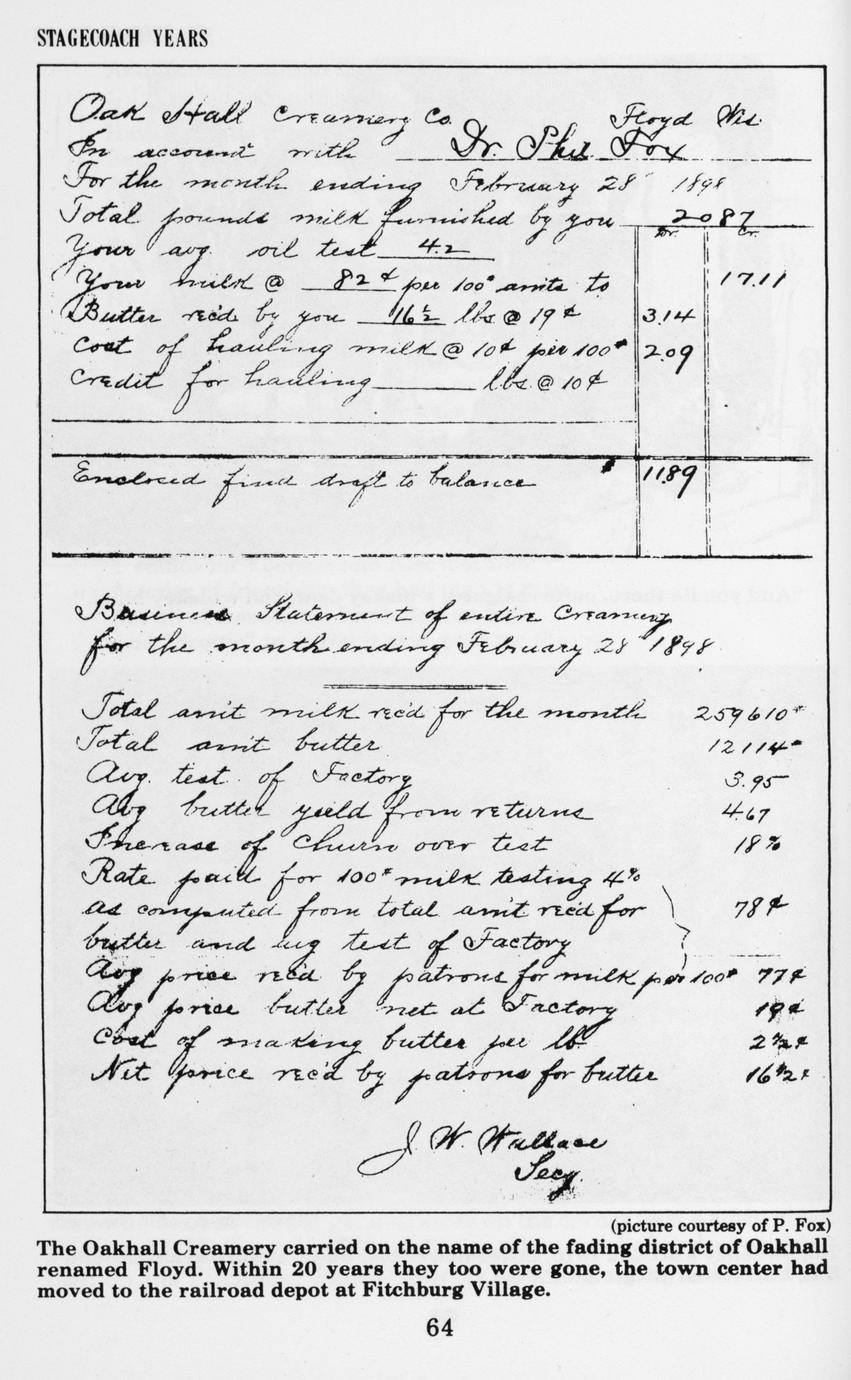 STAGECOACH YEARS
Oak Hall Creamery Co. Floyd Wis.
In account with Dr. Phil Fox
For the month ending February 28" 1898
Total pounds milk furnished by you 2087
Dr. Cr.
Your avg. oil test 4.2
Your milk @ 82¢ per 100# amts to 17.11
Butter rec'd by you 16½ lbs @ 19¢ 3.14
Cost of hauling milk @ 10¢ per 100# 2.09
Credit for hauling lbs. @ 10¢
Enclosed find draft to balance 11.89
Business Statement of entire Creamery
for the month ending February 28" 1898
Total am't milk rec'd for the month 259610#
Total am't butter 12114#
Avg. test of Factory 3.95
Avg butter yield from returns 4.67
Increase of churn over test 18%
Rate paid for 100# milk testing 4%
as computed from total am't rec'd for 78¢
butter and avg test of Factory
Avg price rec'd by patrons for milk per 100# 77¢
Avg price butter net at Factory 19¢
Cost of making butter per lb. 2½¢
Net price rec'd by patrons for butter 16½¢
J. W. Wallace
Secy.
(picture courtesy of P. Fox)
The Oakhall Creamery carried on the name of the fading district of Oakhall
renamed Floyd. Within 20 years they too were gone, the town center had
moved to the railroad depot at Fitchburg Village.
64